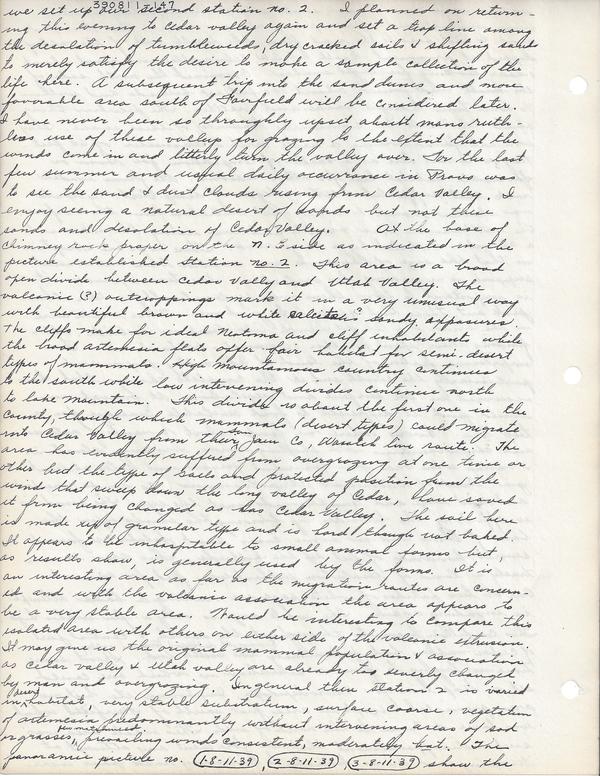 390811-47
we set up our second station no. 2. I planned on return-
ing this evening to Cedar Valley again and set a trap line among
the desolation of tumbleweeds, dry cracked soils & shifting sands
to merely satisfy the desire to make a sample collection of the
life here. A subsequent trip into the sand dunes and more
favorable area south of Fairfield will be considered later.
I have never been so throughly upset abaut mans ruth-
less use of these valleys for grazing to the extent that the
winds come in and litterly turn the valley over. For the last
few summer and usual daily occurrance in Provo was
to see the sand & dust clouds rising from Cedar Valley. I
enjoy seeing a natural desert of sands but not these
sands and desolation of Cedar Valley. At the base of
Chimney rock proper on the N. E side as indicated in the
picture established station no. 2. This area is a broad
open divide between Cedar Vally and Utah Valley. The
volcanic (?) outcroppings mark it in a very unusual way
with beautiful brown and white sandy exposures.
The cliffs make for ideal Neotoma and cliff inhabitants while
the broad artemesia flats offer fair habitat for semi-desert
types of mammals. High mountainous country continues
to the south while low intervening divides continue north
to lake mountain. This divide is about the first one in the
county, through which mammals (desert types) could migrate
into Cedar Valley from the Co, Wasatch line route. The
area has evidently suffered from overgrazing at one time or
other but the type of soils and protected position from the
wind that sweep down the long valley of Cedar, have saved
it from being changed as has Cedar Valley. The soil here
is made up of granular type and is hard though not baked.
It appears to be inhospitable to small animal forms but,
as results show, is generally used by the forms. It is
an interesting area as far as the migration routes are concern-
ed and with the volcanic association the area appears to
be a very stable area. Would be interesting to compare this
isolated area with others on either side of the volcanic extrusion.
It may give us the original mammal population & association
as Cedar valley & Utah valley are already too severly changed
by man and overgrazing. In general then station 2 is varied
in habitat, very stable substratum, surface coarse, vegetation
of artemesia predominantly without intervening areas of sod
or grasses, prevailing winds consistent, moderately hot. The
panoramic picture no. 1-8-11-39, 2-8-11-39, 3-8-11-39 show the